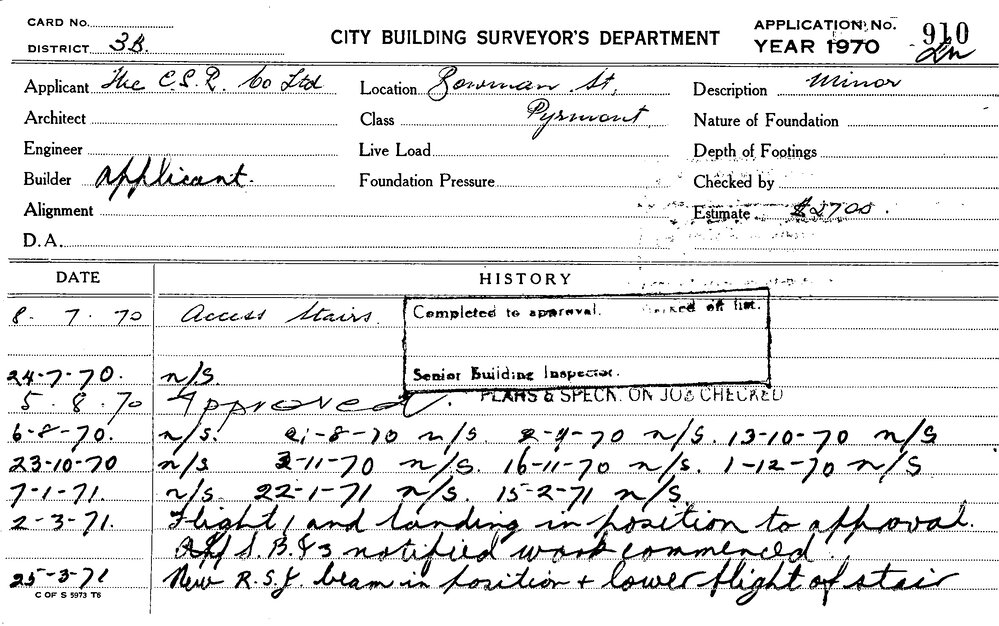 CARD No.
DISTRICT 3B.
CITY BUILDING SURVEYOR'S DEPARTMENT
APPLICATION No. 910
YEAR 1970
Applicant The C.S.R. Co Ltd
Location Bowman St,
Description Minor
Architect
Class Pyrmont
Nature of Foundation
Engineer
Live Load
Depth of Footings
Builder Applicant.
Foundation Pressure
Checked by
Alignment
Estimate $2700.
D.A.
DATE HISTORY
8. 7. 70 Access Stairs.
Completed to approval. off list.
24-7-70. n/S.
Senior Building Inspector.
5. 8. 70 Approved.
PLANS & SPECN. ON JOB CHECKED
6-8-70. n/S. 21-8-70 n/S. 2-9-70 n/S. 13-10-70 n/S
23-10-70 n/S 3-11-70 n/S. 16-11-70 n/S. 1-12-70 n/S
7-1-71. n/S. 22-1-71 n/S. 15-2-71 n/S
2-3-71. Flight 1 and landing in position to approval.
S.B. notified work commenced.
25-3-71 New R.S.J. beam in position + lower flight of stair
C OF S 5973 T6